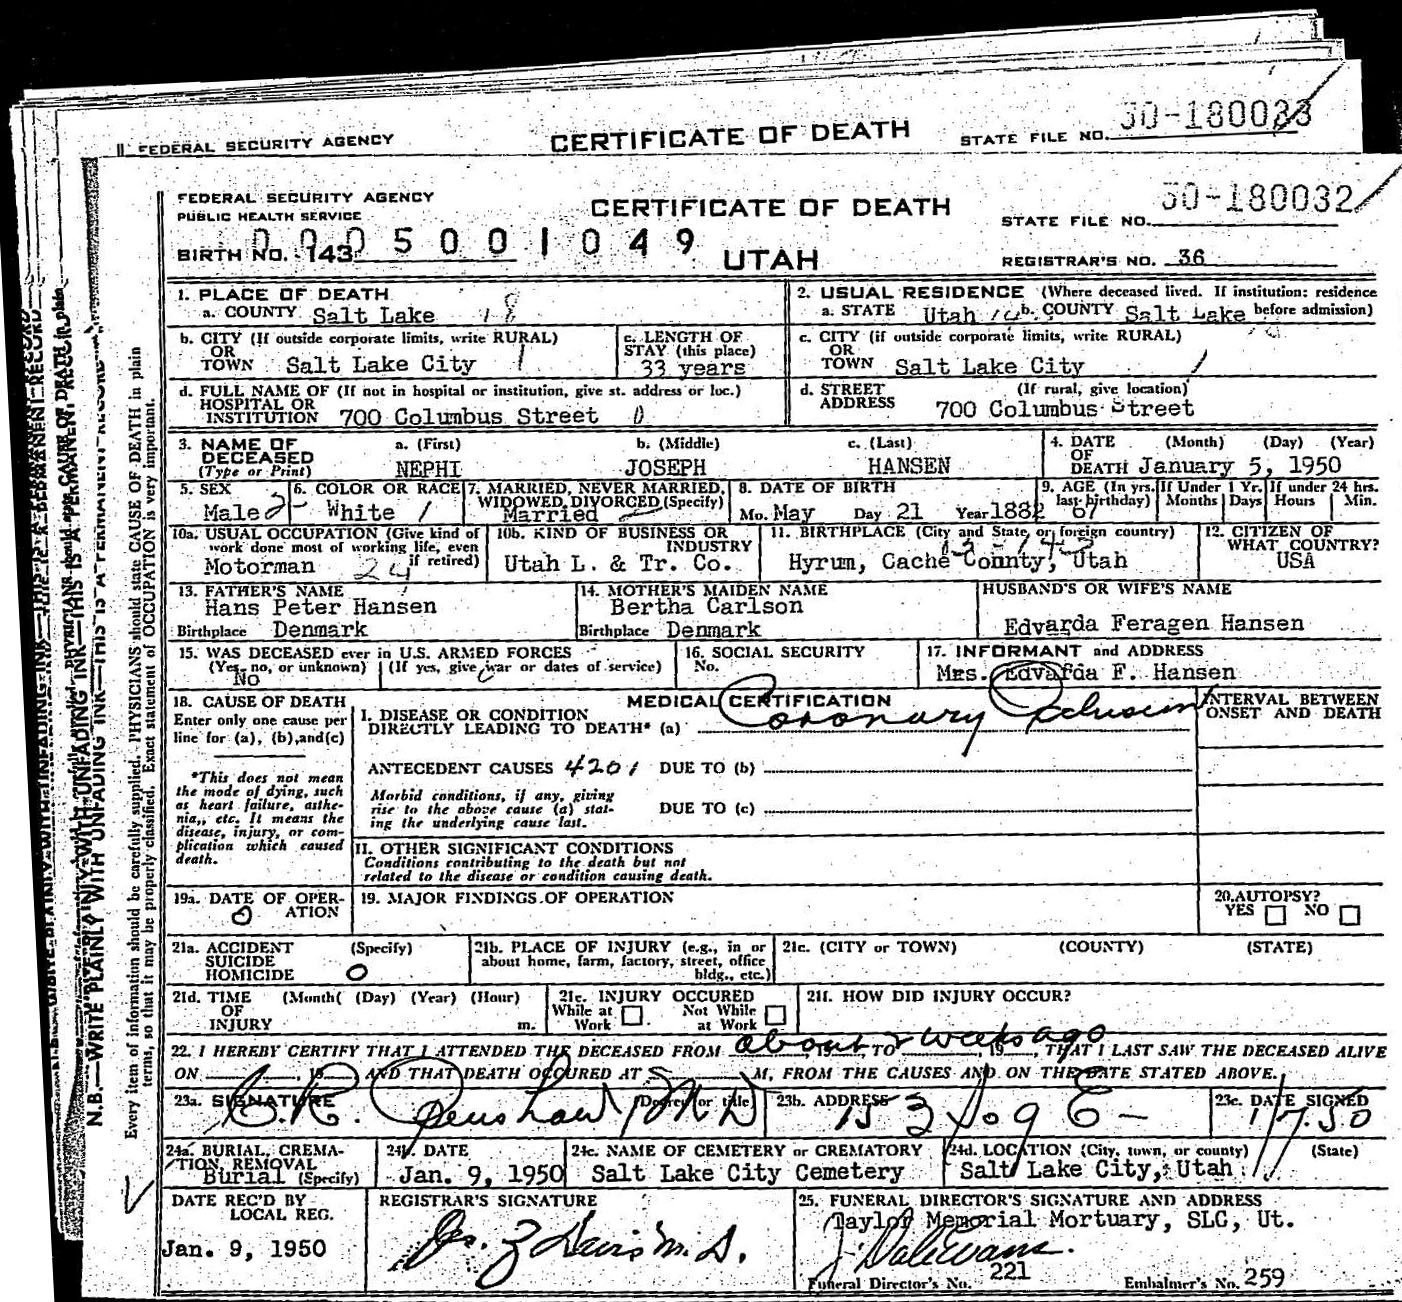 FEDERAL SECURITY AGENCY CERTIFICATE OF DEATH STATE FILE NO. 50-180033
FEDERAL SECURITY AGENCY CERTIFICATE OF DEATH 50-180032
PUBLIC HEALTH SERVICE STATE FILE NO.
BIRTH NO. 143 0005001049 UTAH REGISTRAR'S NO. 36
1. PLACE OF DEATH 2. USUAL RESIDENCE (Where deceased lived. If institution: residence
a. COUNTY Salt Lake 18 a. STATE Utah b. COUNTY Salt Lake before admission)
b. CITY (If outside corporate limits, write RURAL) c. LENGTH OF c. CITY (if outside corporate limits, write RURAL)
OR STAY (this place) OR
TOWN Salt Lake City 1 33 years TOWN Salt Lake City 1
d. FULL NAME OF (If not in hospital or institution, give st. address or loc.) d. STREET (If rural, give location)
HOSPITAL OR ADDRESS
INSTITUTION 700 Columbus Street 0 700 Columbus Street
3. NAME OF a. (First) b. (Middle) c. (Last) 4. DATE (Month) (Day) (Year)
DECEASED OF
(Type or Print) NEPHI JOSEPH HANSEN DEATH January 5, 1950
5. SEX 6. COLOR OR RACE 7. MARRIED, NEVER MARRIED, 8. DATE OF BIRTH 9. AGE (In yrs. If Under 1 Yr. If under 24 hrs.
WIDOWED, DIVORCED (Specify) last birthday) Months Days Hours Min.
Male 2 White 1 Married Mo. May Day 21 Year 1882 67
10a. USUAL OCCUPATION (Give kind of 10b. KIND OF BUSINESS OR 11. BIRTHPLACE (City and State, or foreign country) 12. CITIZEN OF
work done most of working life, even INDUSTRY WHAT COUNTRY?
Motorman 24 if retired) Utah L. & Tr. Co. Hyrum, Cache County, Utah USA
13. FATHER'S NAME 14. MOTHER'S MAIDEN NAME HUSBAND'S OR WIFE'S NAME
Hans Peter Hansen Bertha Carlson
Birthplace Denmark Birthplace Denmark Edvarda Feragen Hansen
15. WAS DECEASED ever in U.S. ARMED FORCES 16. SOCIAL SECURITY 17. INFORMANT and ADDRESS
(Yes, no, or unknown) (If yes, give war or dates of service) No.
No Mrs. Edvarda F. Hansen
18. CAUSE OF DEATH MEDICAL CERTIFICATION INTERVAL BETWEEN
Enter only one cause per I. DISEASE OR CONDITION ONSET AND DEATH
line for (a), (b), and (c) DIRECTLY LEADING TO DEATH* (a) Coronary Oclusion
ANTECEDENT CAUSES 4201 DUE TO (b)
*This does not mean
the mode of dying, such Morbid conditions, if any, giving
as heart failure, asthe- rise to the above cause (a) stat- DUE TO (c)
nia, etc. It means the ing the underlying cause last.
disease, injury, or com-
plication which caused II. OTHER SIGNIFICANT CONDITIONS
death. Conditions contributing to the death but not
related to the disease or condition causing death.
19a. DATE OF OPER- 19. MAJOR FINDINGS OF OPERATION 20. AUTOPSY?
ATION 0 YES NO
21a. ACCIDENT (Specify) 21b. PLACE OF INJURY (e.g., in or 21c. (CITY or TOWN) (COUNTY) (STATE)
SUICIDE about home, farm, factory, street, office
HOMICIDE 0 bldg., etc.)
21d. TIME (Month( (Day) (Year) (Hour) 21e. INJURY OCCURED 21f. HOW DID INJURY OCCUR?
OF While at Not While
INJURY m. Work at Work
22. I HEREBY CERTIFY THAT I ATTENDED THE DECEASED FROM about 2 weeks ago, 19 TO , 19 , THAT I LAST SAW THE DECEASED ALIVE
ON 19 AND THAT DEATH OCCURED AT 5 M, FROM THE CAUSES AND ON THE DATE STATED ABOVE.
23a. SIGNATURE (Degree or title) 23b. ADDRESS 23c. DATE SIGNED
MD 1/7.50
24a. BURIAL, CREMA- 24b. DATE 24c. NAME OF CEMETERY or CREMATORY 24d. LOCATION (City, town, or county) (State)
TION, REMOVAL
Burial (Specify) Jan. 9, 1950 Salt Lake City Cemetery Salt Lake City, Utah
DATE REC'D BY REGISTRAR'S SIGNATURE 25. FUNERAL DIRECTOR'S SIGNATURE AND ADDRESS
LOCAL REG. Taylor Memorial Mortuary, SLC, Ut.
Jan. 9, 1950 J. Dale Evans.
Funeral Director's No. 221 Embalmer's No. 259
N.B.—WRITE PLAINLY WITH UNFADING INK—THIS IS A PERMANENT RECORD
Every item of information should be carefully supplied. PHYSICIANS should state CAUSE OF DEATH in plain
terms, so that it may be properly classified. Exact statement of OCCUPATION is very important.